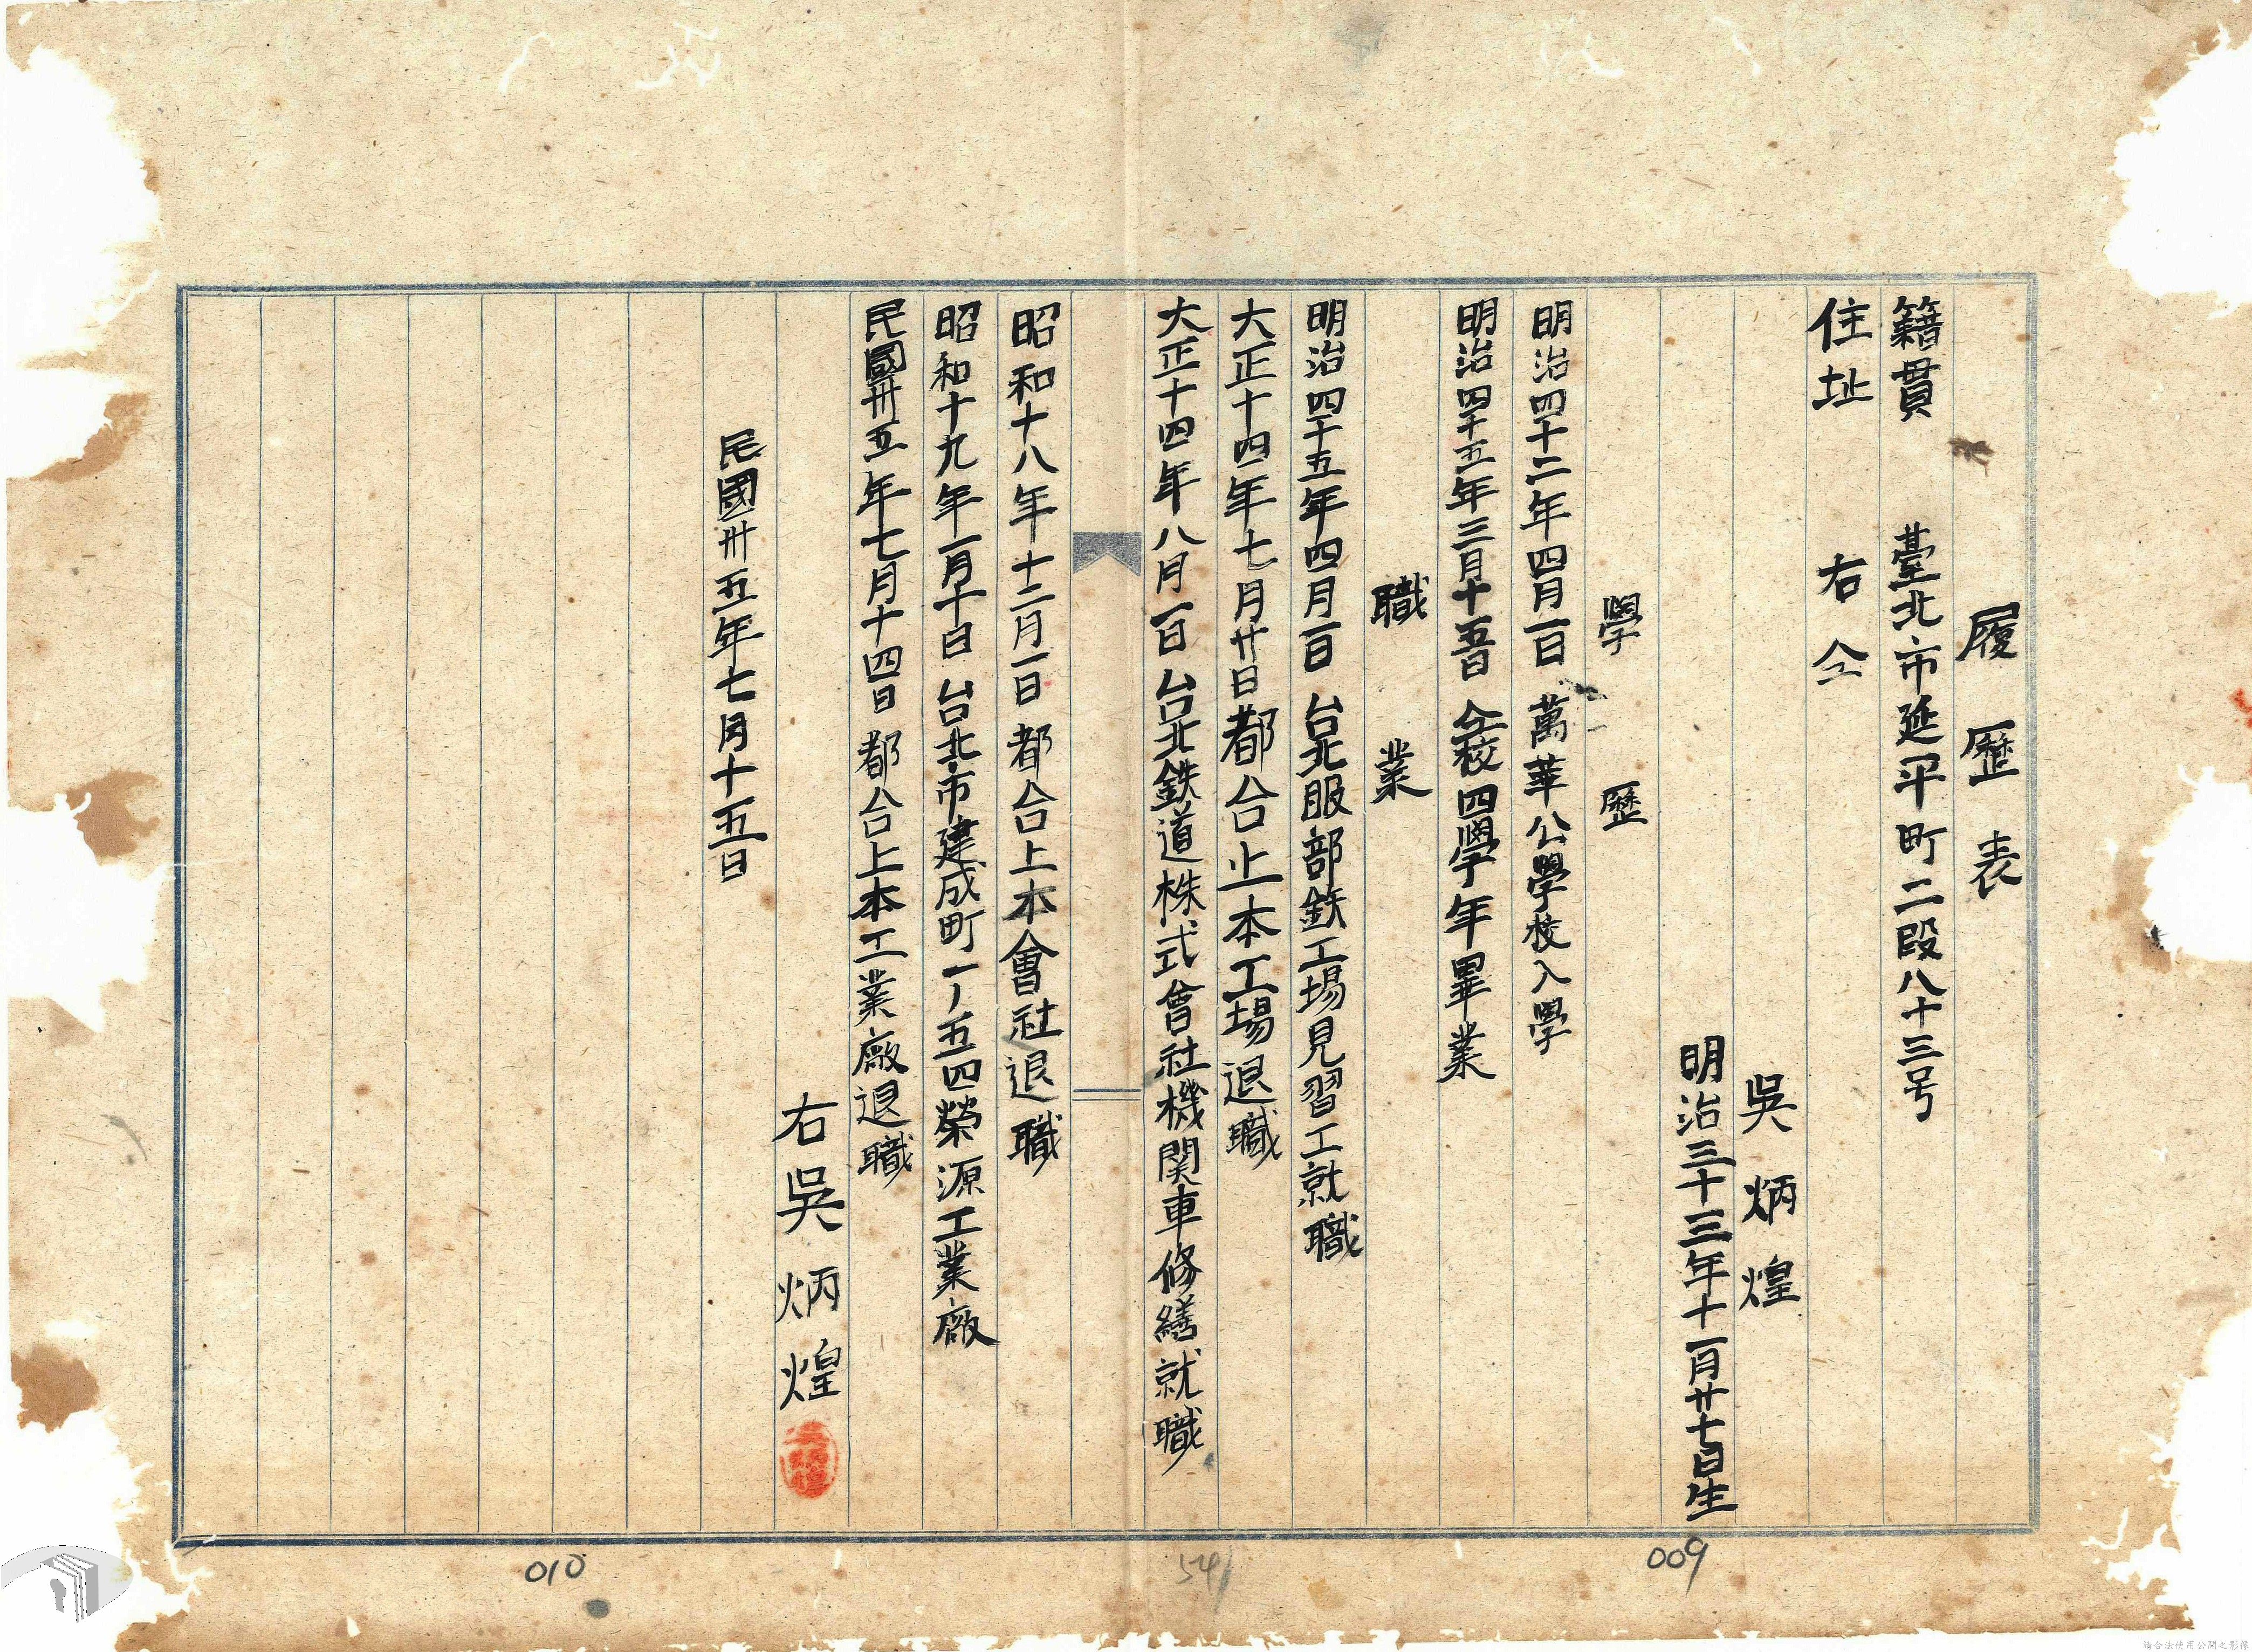 履歷表
籍貫 臺北市延平町二段八十三号
住址 右仝
吳炳煌
明治三十三年十一月廿七日生
學歷
明治四十二年四月一日 萬華公學校入學
明治四十五年三月十五日 仝校四學年畢業
職業
明治四十五年四月一日 台北服部鉄工場見習工就職
大正十四年七月廿日都合上本工場退職
大正十四年八月一日台北鉄道株式會社機関車修繕就職
昭和十八年十二月一日都合上本會社退職
昭和十九年一月十日 台北市建成町一ノ五四榮源工業廠
民國卅五年七月十四日都合上本工業廠退職
右吳炳煌
民國卅五年七月十五日
009
541
010
請合法使用公開之影像